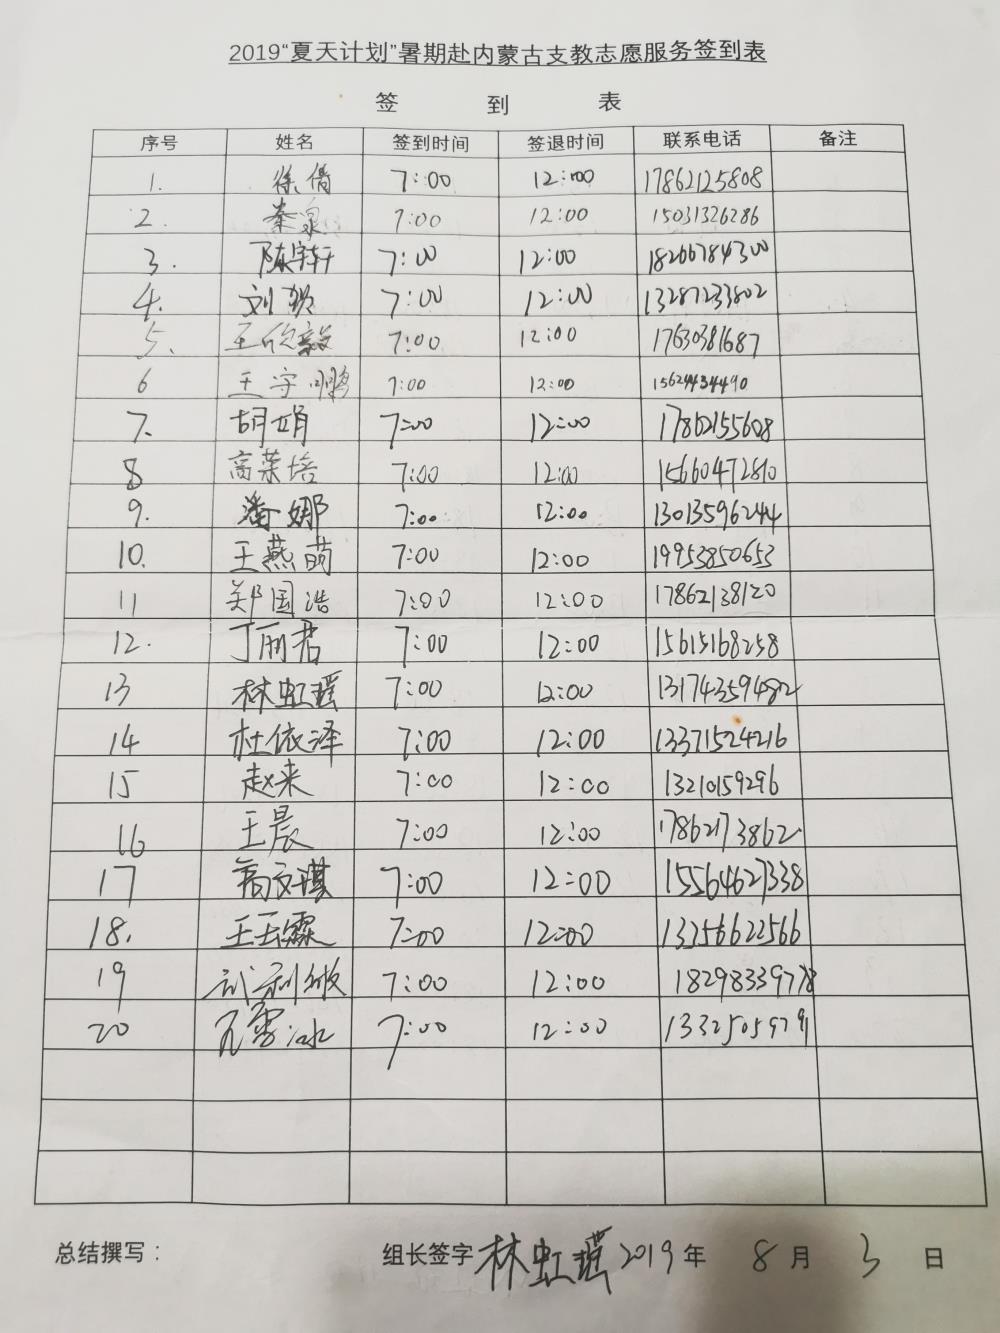 2019“夏天计划”暑期赴内蒙古支教志愿服务签到表
签 到 表
序号 姓名 签到时间 签退时间 联系电话 备注
1. 徐倩 7:00 12:00 17862125808
2. 秦泉 7:00 12:00 15031326286
3. 陈宇轩 7:00 12:00 18206784300
4. 刘 7:00 12:00 13287233802
5. 王欣毅 7:00 12:00 17630381687
6 王守鹏 7:00 12:00 15624434490
7. 胡娟 7:00 12:00 17862155608
8 高荣培 7:00 12:00 15660472810
9. 潘娜 7:00 12:00 13013596244
10. 王燕萌 7:00 12:00 19953850653
11 郑国浩 7:00 12:00 17862138120
12. 丁丽君 7:00 12:00 15615168258
13 林虹瑶 7:00 12:00 13174359482
14 杜依泽 7:00 12:00 13371524216
15 赵来 7:00 12:00 13210159296
16 王晨 7:00 12:00 17862173862
17 高文琪 7:00 12:00 15564627338
18. 王玉霖 7:00 12:00 13256622566
19 武利敏 7:00 12:00 18298339778
20 雪冰 7:00 12:00 13325059791
总结撰写： 组长签字 林虹瑶 2019年 8月 3日